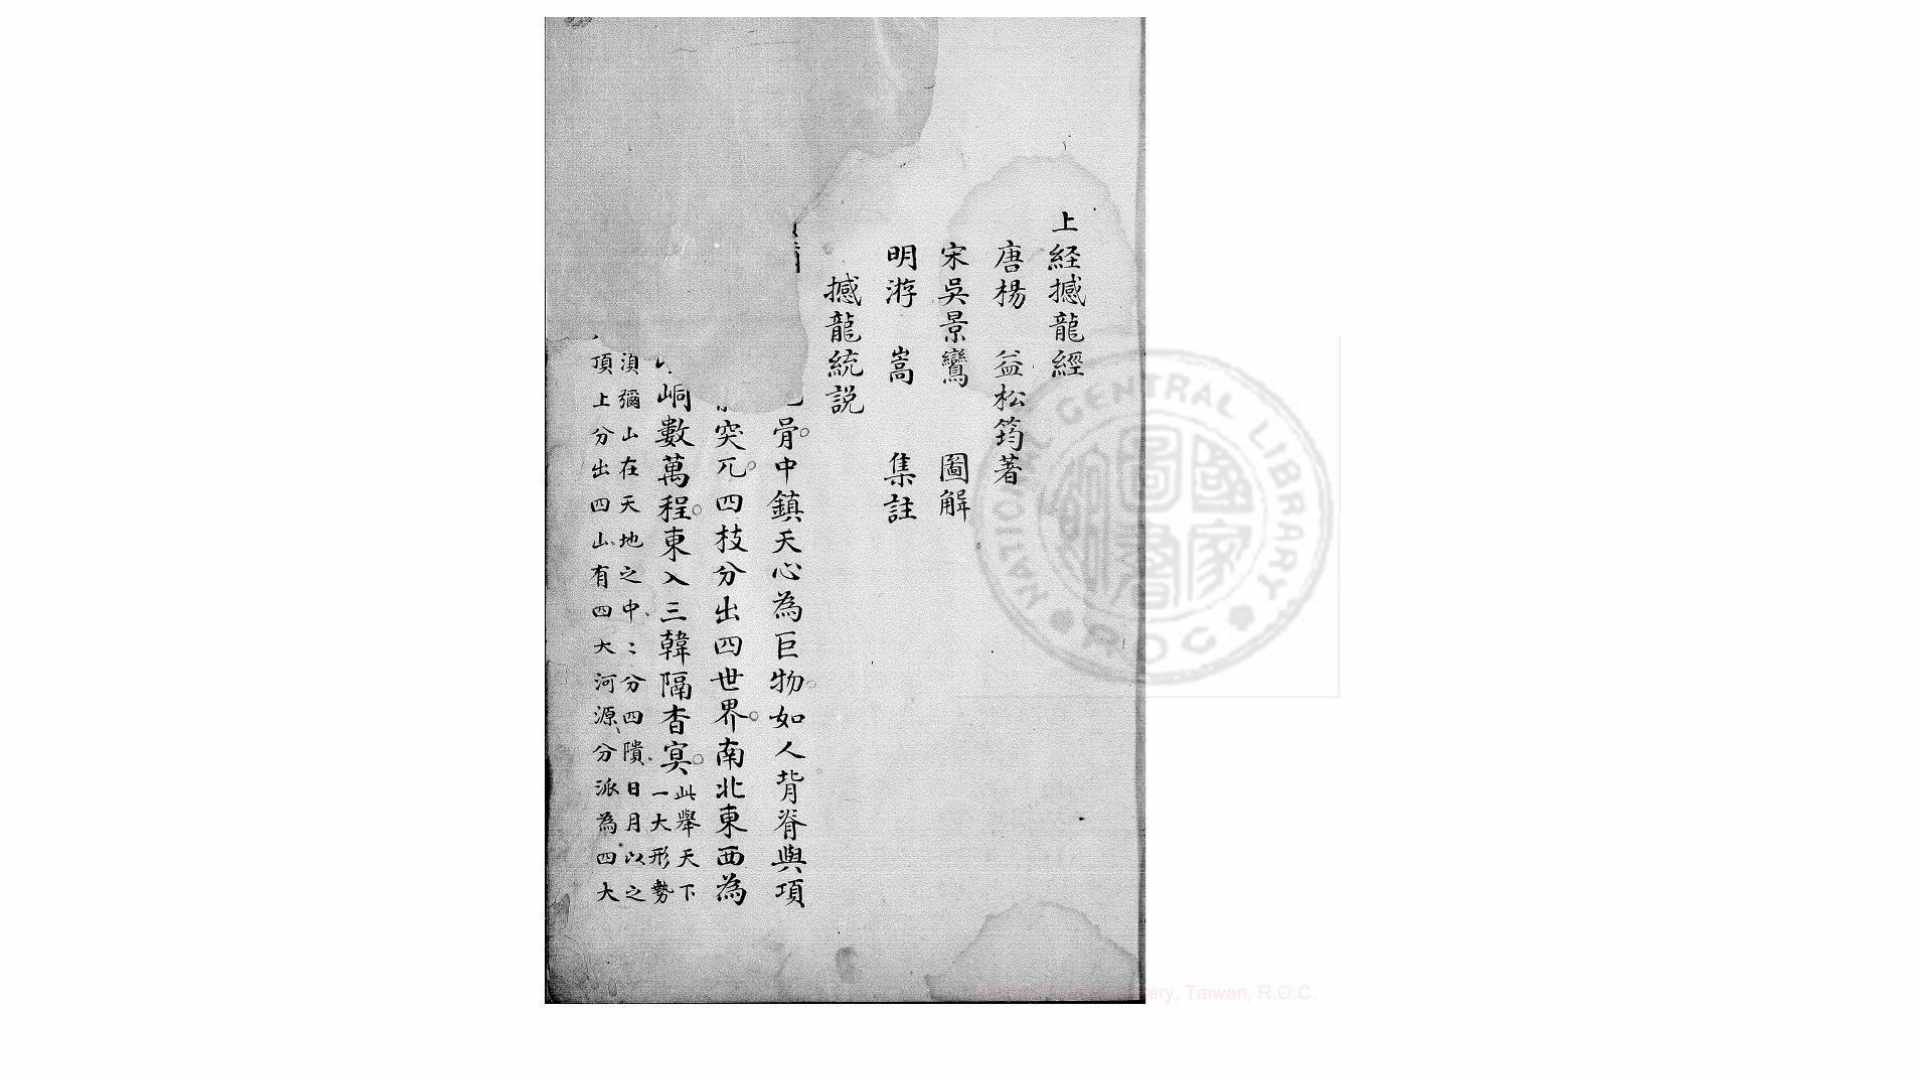 上経撼龍經
唐楊 益松筠著
宋吳景鸞 圖解
明游 嵩 集註
撼龍統説
骨中鎮天心為巨物如人背脊與項
突兀四枝分出四世界南北東西為
峒數萬程東入三韓隔杳冥此舉天下
一大形勢
湏彌山在天地之中〻分四隤日月以之
頂上分出四山有四大河源分派為四大
NATIONAL CENTRAL LIBRARY
R.O.C
國家圖書館
Library, Taiwan, R.O.C.